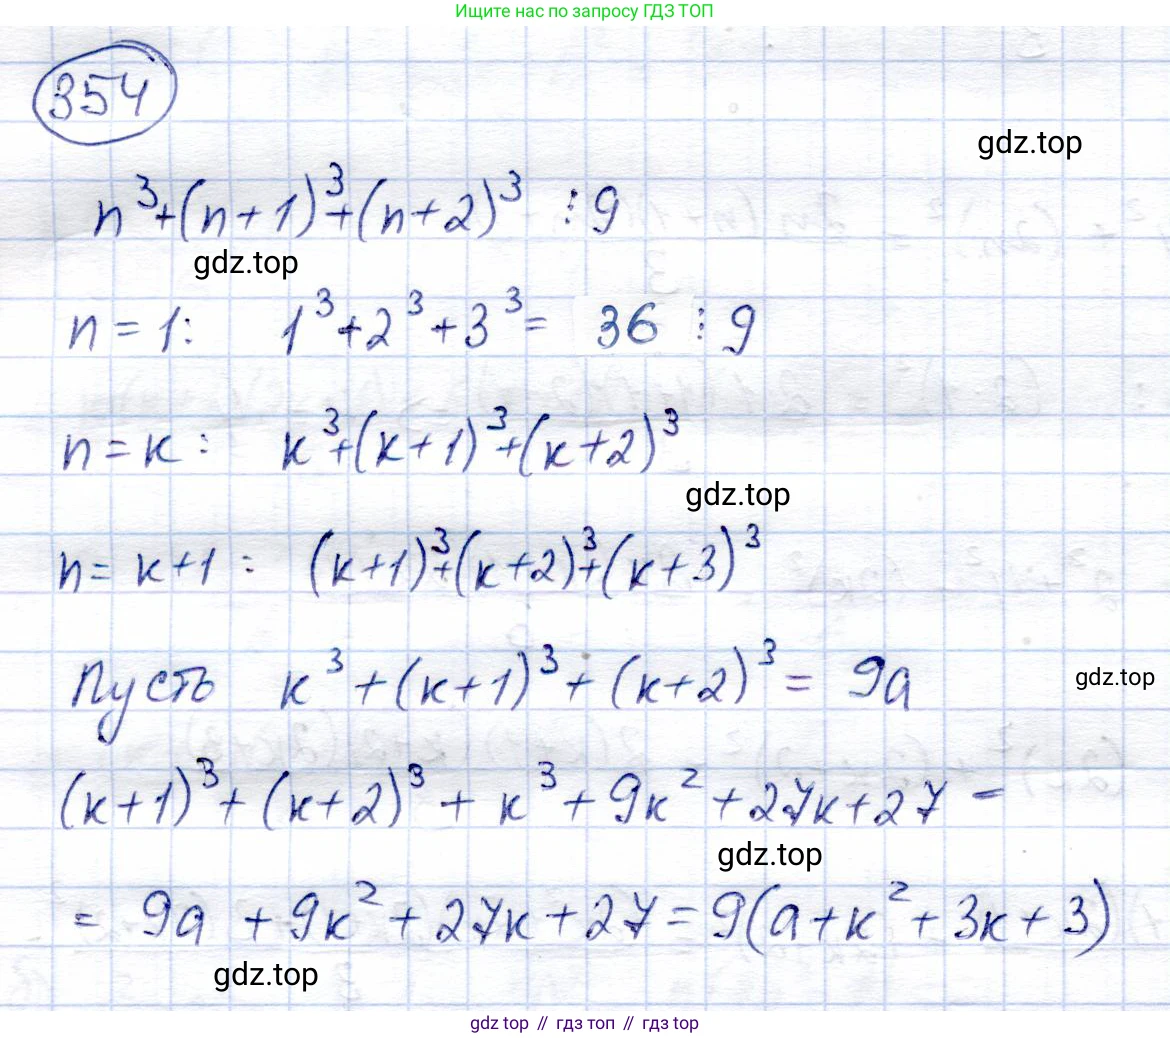 Ищите нас по запросу ГДЗ ТОП
354
gdz.top
n³+(n+1)³+(n+2)³ ⋮ 9
gdz.top
n=1: 1³+2³+3³= 36 ⋮ 9
n=к: к³+(к+1)³+(к+2)³
gdz.top
n=к+1: (к+1)³+(к+2)³+(к+3)³
Пусть к³+(к+1)³+(к+2)³= 9а
gdz.top
(к+1)³+(к+2)³+к³+9к²+27к+27=
gdz.top
= 9а+9к²+27к+27=9(а+к²+3к+3)
gdz.top
gdz top // гдз топ // гдз top